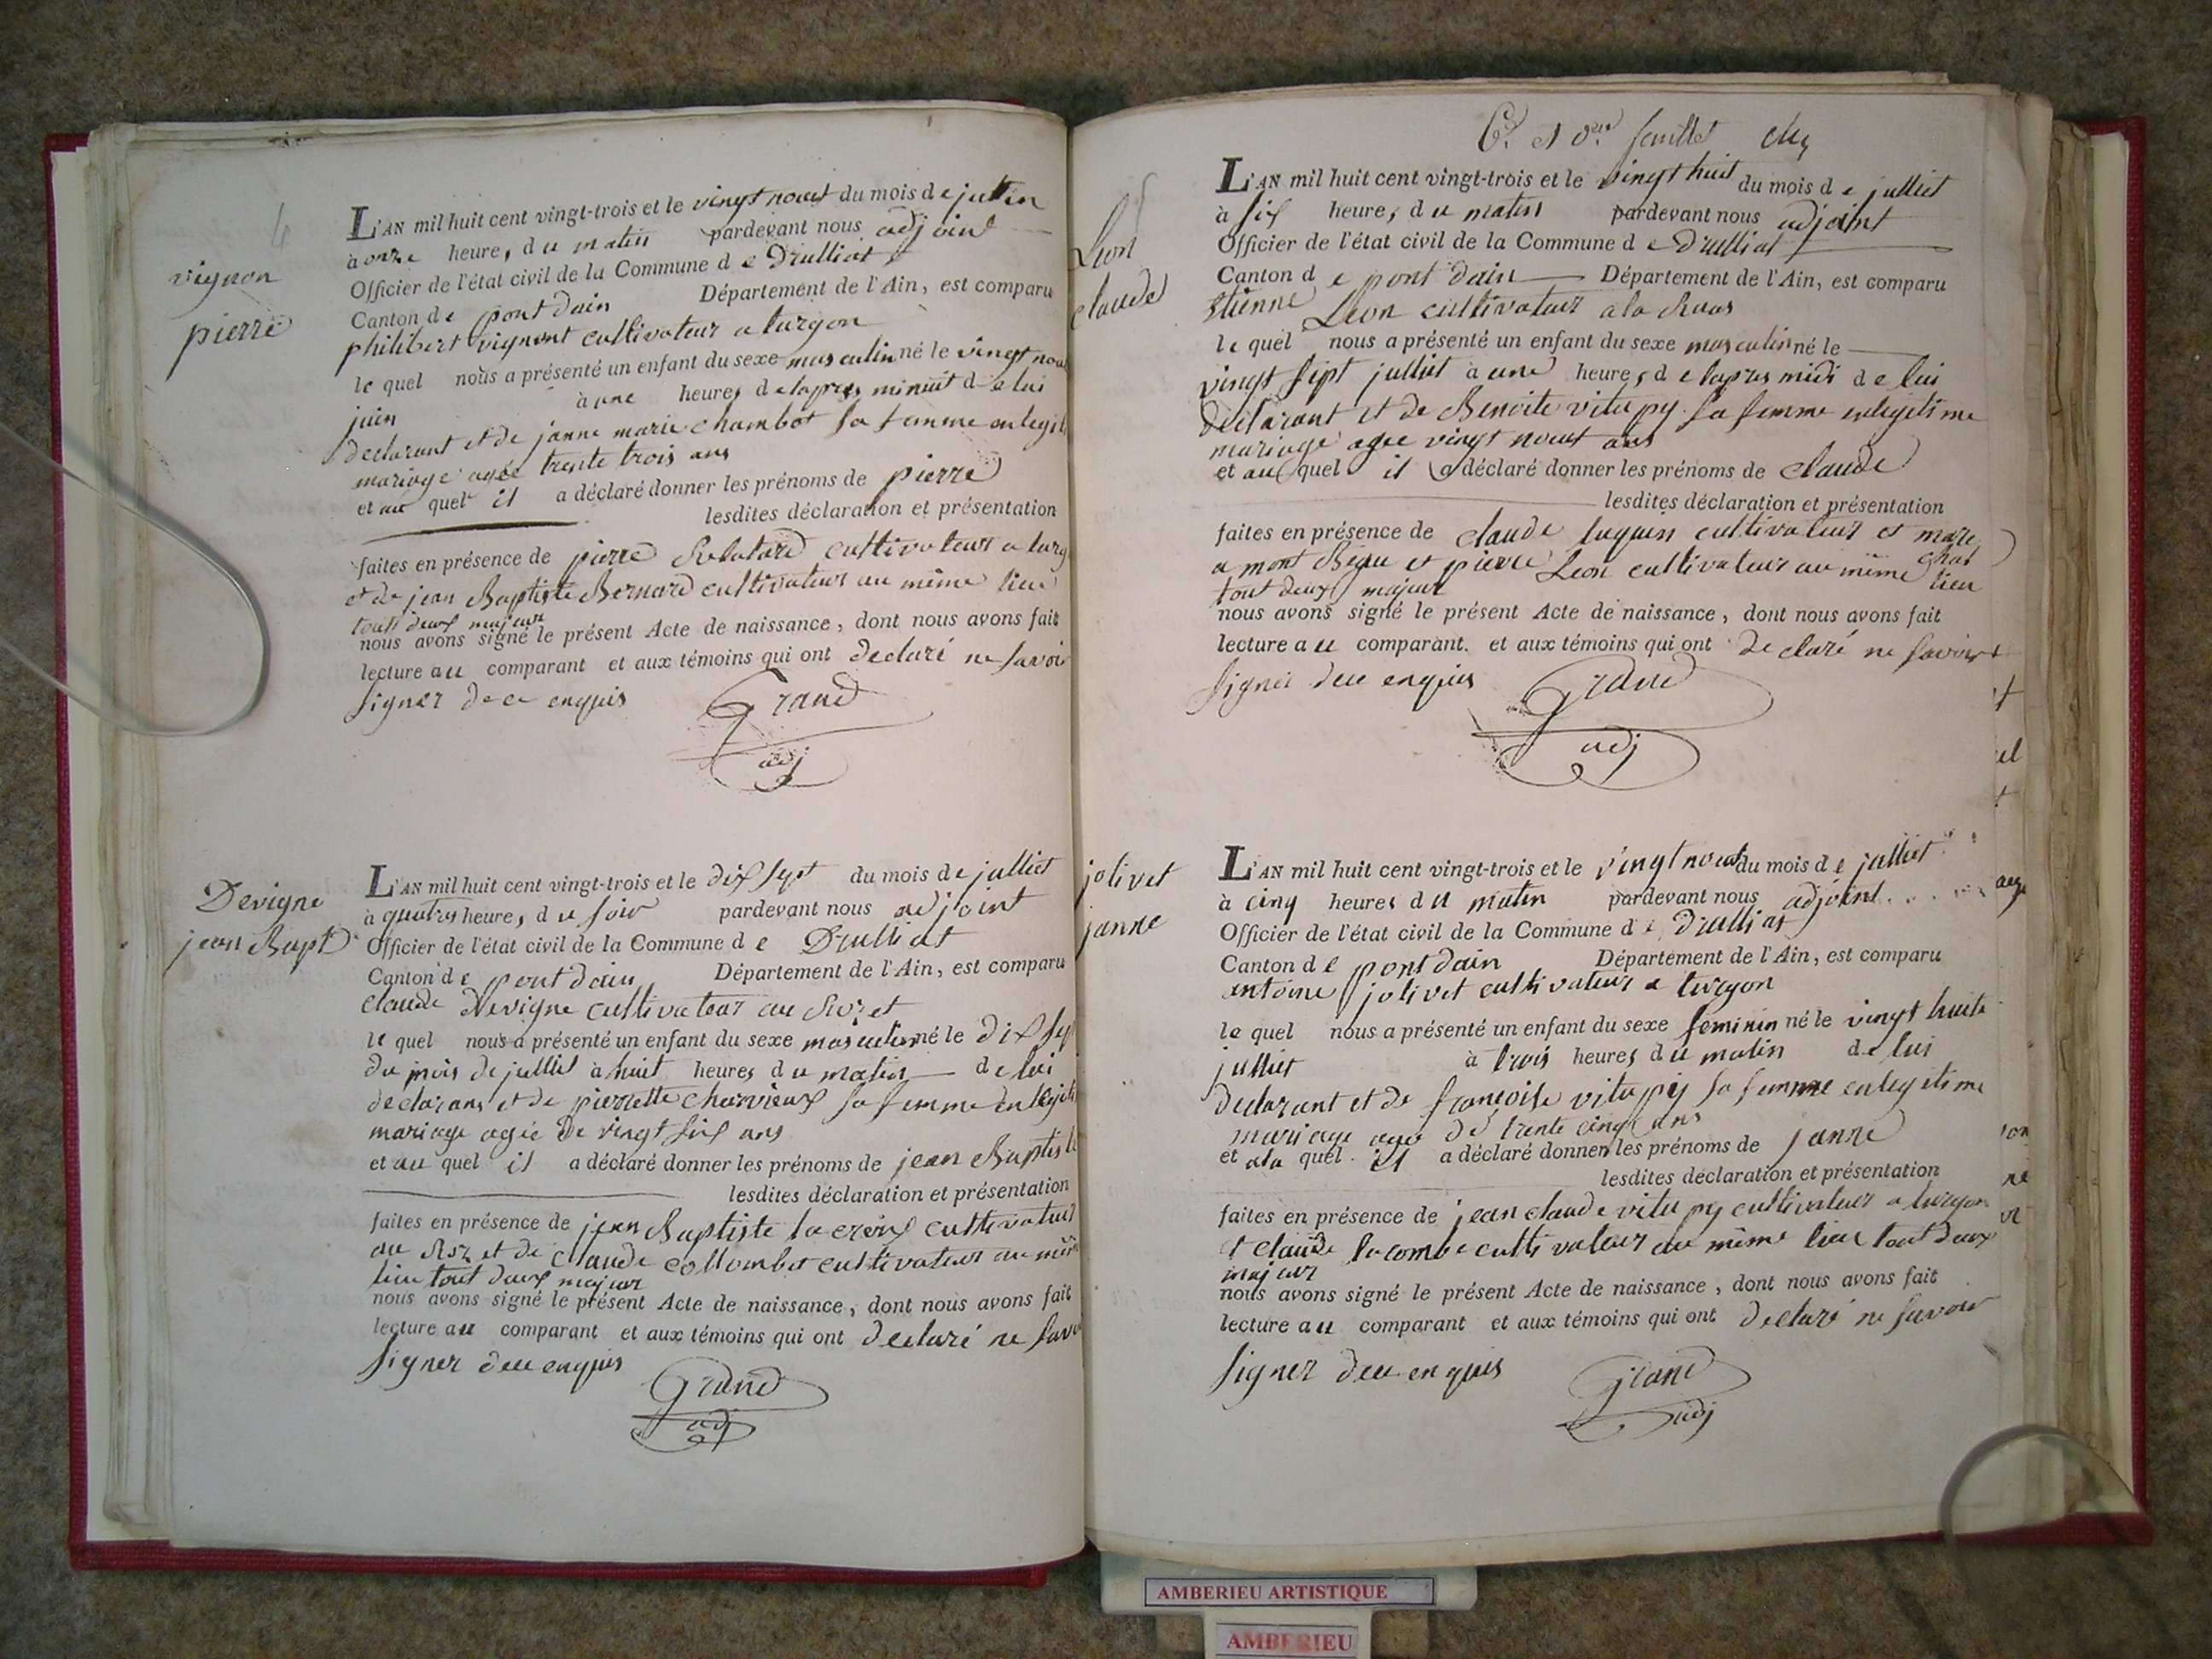 4
vignon
pierre
L'AN mil huit cent vingt-trois et le vingt neuf du mois de juin
à onze heures du matin pardevant nous adjoint
Officier de l'état civil de la Commune de Druilliat
Canton de pont dain Département de l'Ain, est comparu
philibert vignont cultivateur a turgon
le quel nous a présenté un enfant du sexe masculin né le vingt neuf
juin à une heures de lapres minuit de lui
declarant et de janne marie chambot sa femme en legit
mariage agée trente trois ans
et au quel il a déclaré donner les prénoms de pierre
lesdites déclaration et présentation
faites en présence de pierre cultivateur a turg
et de jean Baptiste Bernard cultivateur au même lieu
tout deux majeur
nous avons signé le présent Acte de naissance, dont nous avons fait
lecture au comparant et aux témoins qui ont declaré ne savoir
signer de ce enquis
Grand
adj
Devigne
jean Bapt
L'AN mil huit cent vingt-trois et le dix sept du mois de julliet
à quatre heures du soir pardevant nous adjoint
Officier de l'état civil de la Commune de Druilliat
Canton de pont dain Département de l'Ain, est comparu
claude Devigne cultivateur au
le quel nous a présenté un enfant du sexe masculin né le dix sep
du mois de julliet à huit heures du matin de lui
declarans et de pierrette charvieux sa femme en legiti
mariage agée de vingt six ans
et au quel il a déclaré donner les prénoms de jean Baptiste
lesdites déclaration et présentation
faites en présence de jean Baptiste la croix cultivateur
au et de claude collombet cultivateur au même
lieu tout deux majeur
nous avons signé le présent Acte de naissance, dont nous avons fait
lecture au comparant et aux témoins qui ont declaré ne savoi
signer dece enquis
Grand
adj
6.e et d.er feuillet
Léon
claude
L'AN mil huit cent vingt-trois et le vingt huit du mois de julliet
à six heures du matin pardevant nous adjoint
Officier de l'état civil de la Commune de Druilliat
Canton de pont dain Département de l'Ain, est comparu
Etienne Léon cultivateur a la
le quel nous a présenté un enfant du sexe masculin né le
vingt sept julliet à une heures de lapres midi de lui
déclarant et de Benoite vitupy sa femme en legitime
mariage agee vingt neuf ans
et au quel il a déclaré donner les prénoms de claude
lesdites déclaration et présentation
faites en présence de claude cultivateur et mare
chal
a mont Bégu et pierre Léon cultivateur au même lieu
tout deux majeur
nous avons signé le présent Acte de naissance, dont nous avons fait
lecture au comparant. et aux témoins qui ont declaré ne savoir
signer dece enquis
Grand
adj
jolivet
janne
L'AN mil huit cent vingt-trois et le vingt neuf du mois de julliet
à cinq heures du matin pardevant nous adjoint
Officier de l'état civil de la Commune de Druilliat
Canton de pont dain Département de l'Ain, est comparu
antoine jolivet cultivateur a turgon
le quel nous a présenté un enfant du sexe feminin né le vingt huite
julliet à trois heures du matin de lui
declarant et de françoise vitupy sa femme en legitime
mariage agée de trente cinq ans
et a la quel il a déclaré donner les prénoms de janne
lesdites déclaration et présentation
faites en présence de jean claude vitupy cultivateur a turgon
et claude lacombe cultivateur au même lieu tout deux
majeur
nous avons signé le présent Acte de naissance, dont nous avons fait
lecture au comparant et aux témoins qui ont declaré ne savoir
signer dece enquis
Grand
adj
AMBERIEU ARTISTIQUE
AMBERIEU